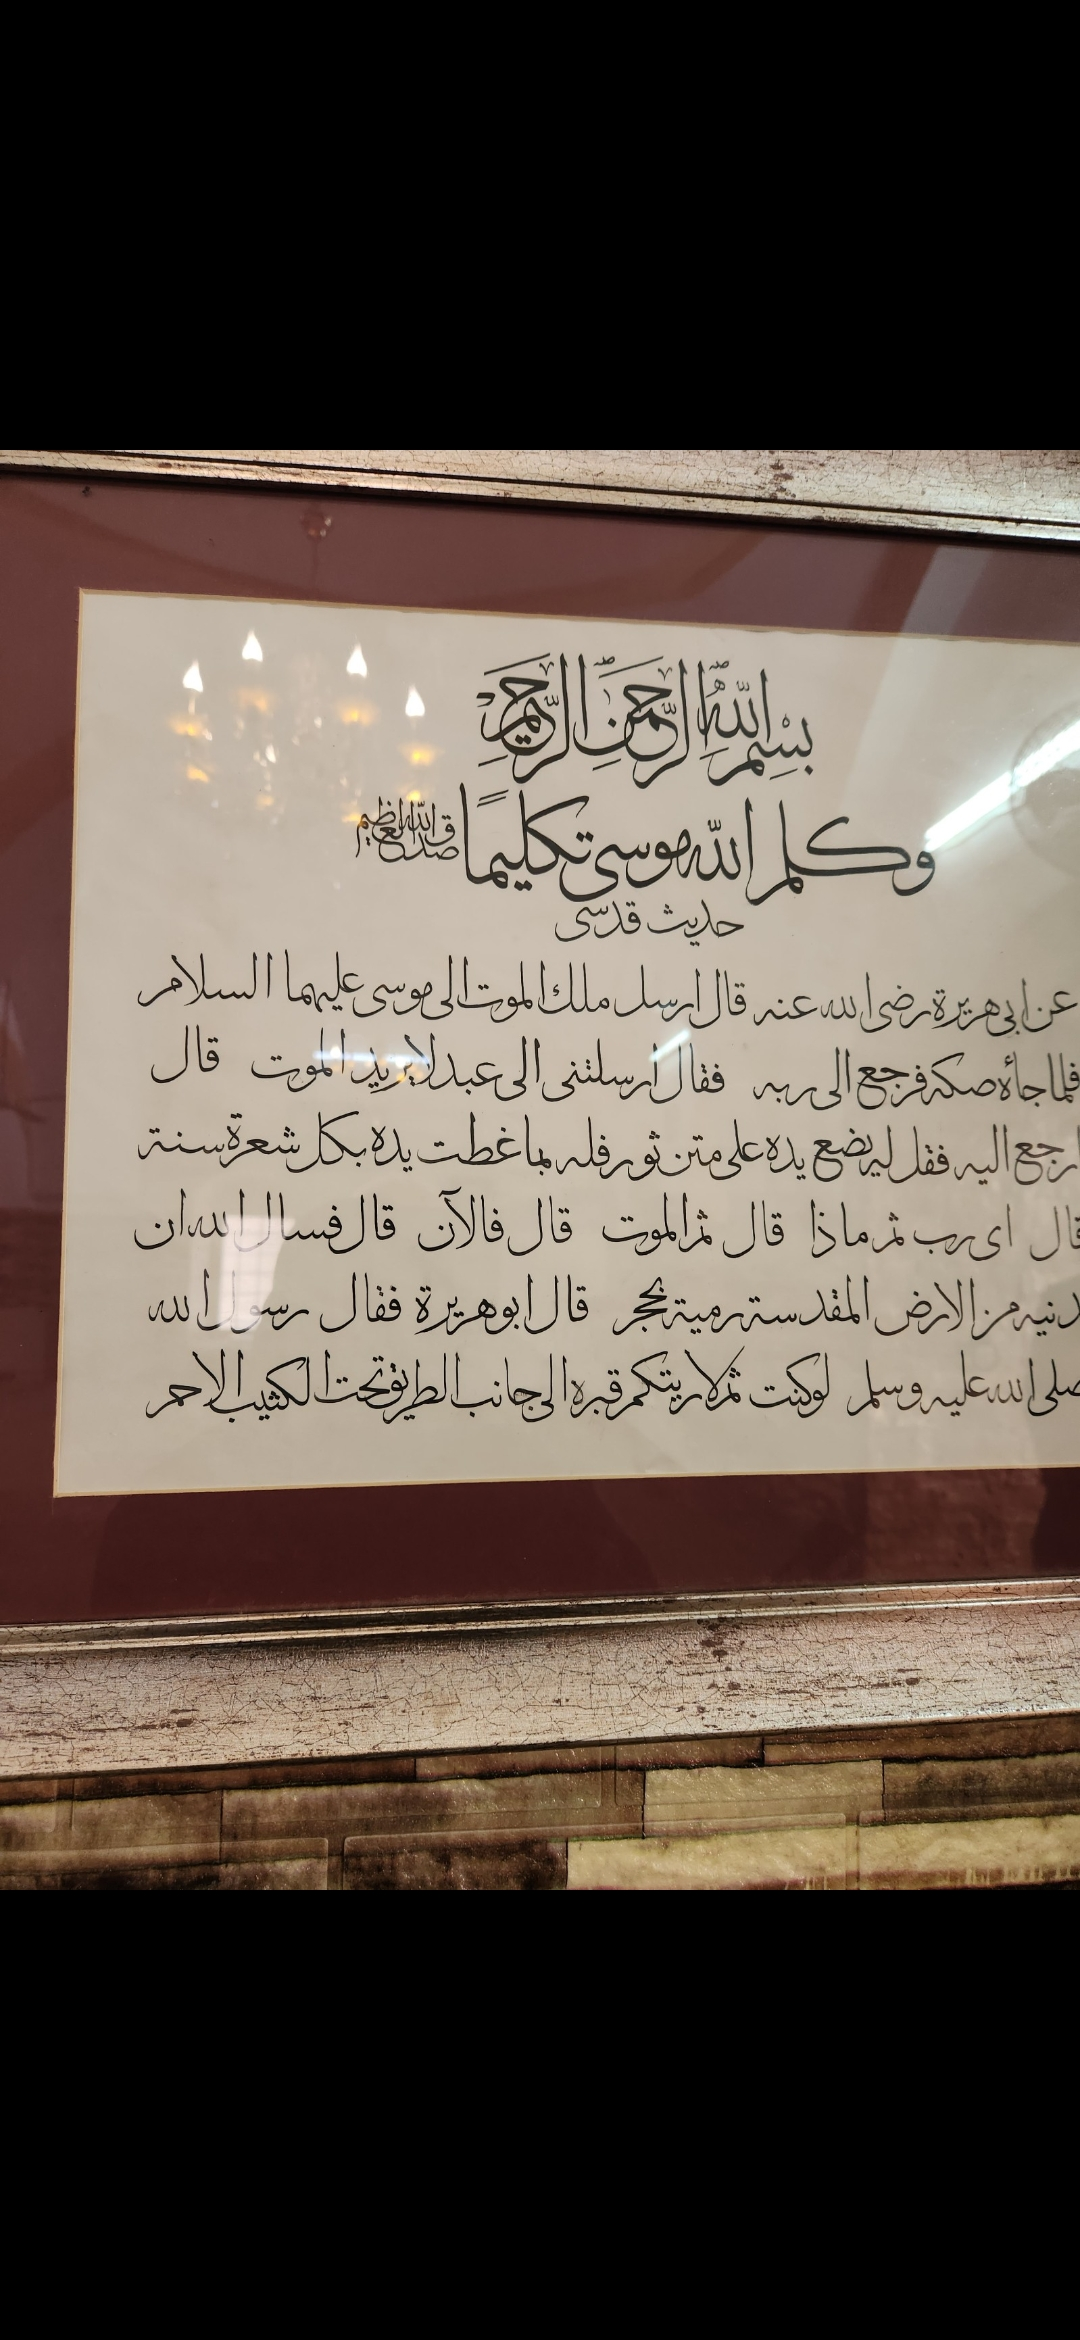 بِسْمِ اللّٰهِ الرَّحْمٰنِ الرَّحِيْمِ
وكلم اللّٰه موسى تكليمًا صدق اللّٰه العظيم
حديث قدسى
عن ابى هريرة رضى الله عنه قال ارسل ملك الموت الى موسى عليهما السلام
فلما جاءه صكه فرجع الى ربه فقال ارسلتنى الى عبد لا يريد الموت قال
ارجع اليه فقل له يضع يده على متن ثور فله بما غطت يده بكل شعرة سنة
قال اى رب ثم ماذا قال ثم الموت قال فالآن قال فسال الله ان
يدنيه من الارض المقدسة رمية بحجر قال ابو هريرة فقال رسول الله
صلى الله عليه وسلم لو كنت ثم لاريتكم قبره الى جانب الطريق تحت الكثيب الاحمر